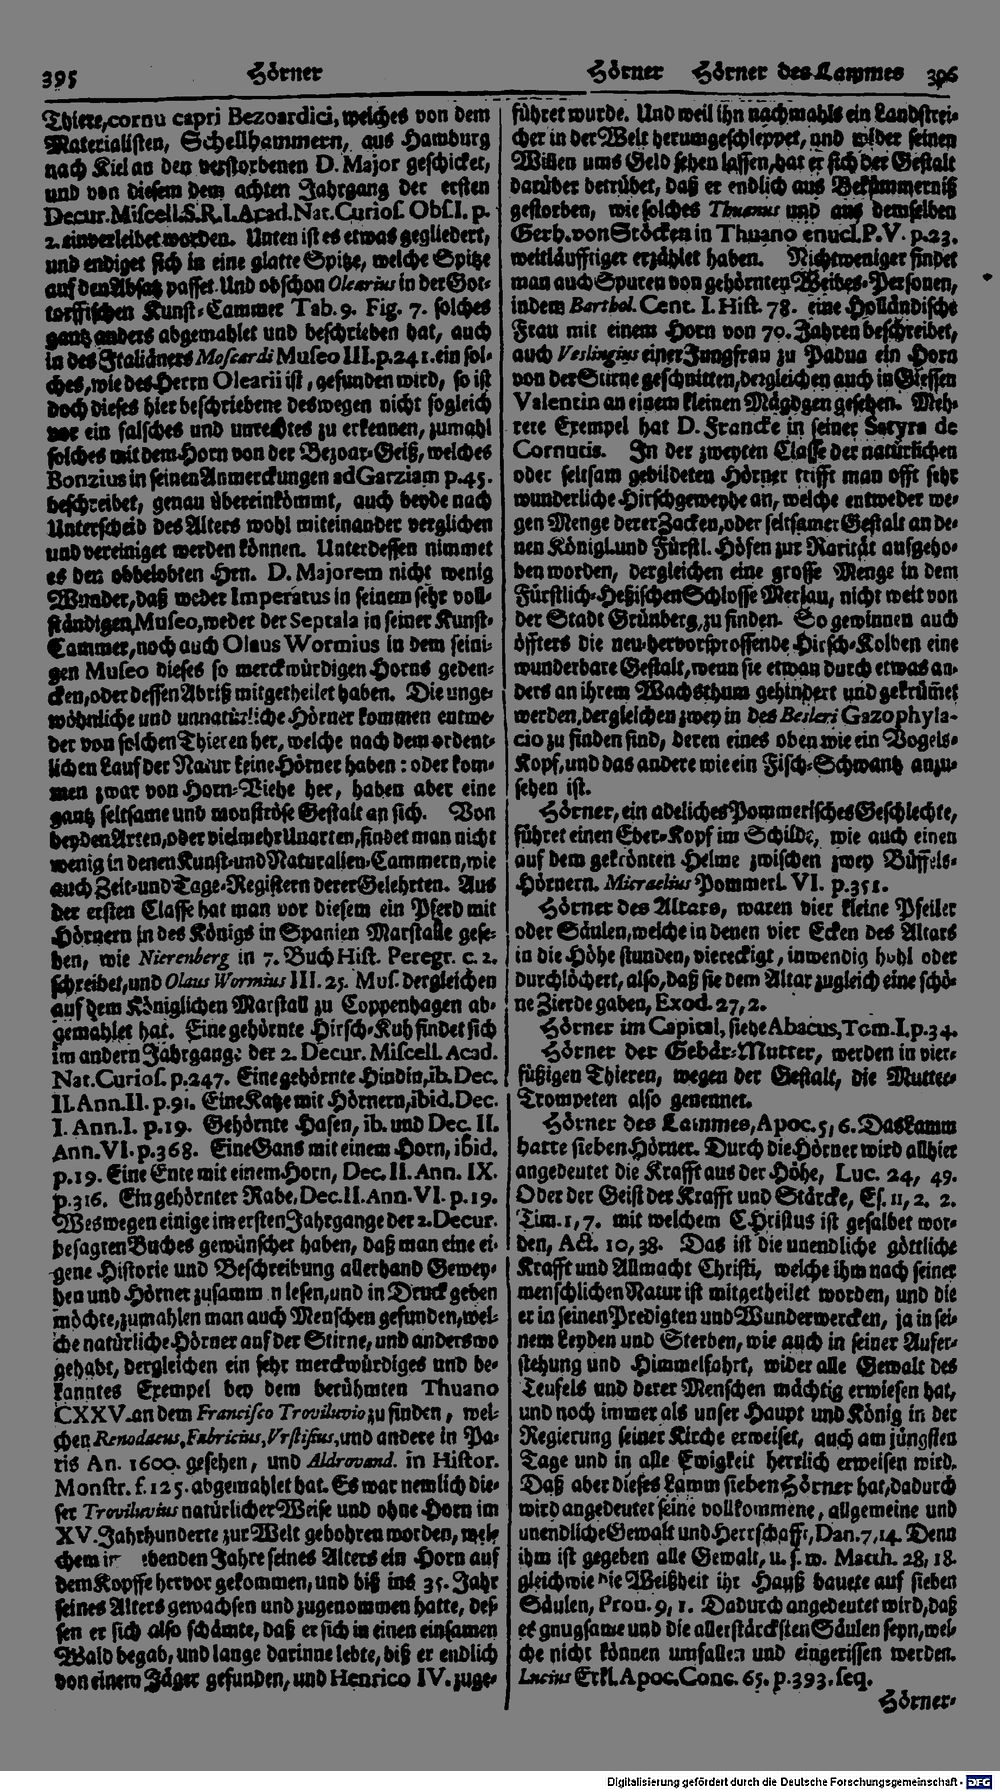 395 Hörner
Hörner Hörner des Lammes 396
Thiere, cornu capri Bezoardici, welches von dem
Materialisten, Schellhammern, aus Hamburg
nach Kiel an den verstorbenen D. Major geschicket,
und von diesem dem achten Jahrgang der ersten
Decur. Miscell. S. R. I. Acad. Nat. Curios. Obs. I. p.
2. einverleibet worden. Unten ist es etwas gegliedert,
und endiget sich in eine glatte Spitze, welche Spitze
auf den Absatz passet. Und obschon Olearius in der Got-
torffischen Kunst-Cammer Tab. 9. Fig. 7. solches
gantz anders abgemahlet und beschrieben hat, auch
in des Italiäners Moscardi Museo III. p. 241. ein sol-
ches, wie des Herrn Olearii ist, gefunden wird, so ist
doch dieses hier beschriebene deswegen nicht sogleich
vor ein falsches und unrechtes zu erkennen, zumahl
solches mit dem Horn von der Bezoar-Geiß, welches
Bonzius in seinen Anmerckungen ad Garziam p. 45.
beschreibet, genau übereinkömmt, auch beyde nach
Unterscheid des Alters wohl miteinander verglichen
und vereiniget werden können. Unterdessen nimmet
es den obbelobten Hrn. D. Majorem nicht wenig
Wunder, daß weder Imperatus in seinem sehr voll-
ständigen Museo, weder der Septala in seiner Kunst-
Cammer, noch auch Olaus Wormius in dem seini-
gen Museo dieses so merckwürdigen Horns geden-
cken, oder dessen Abriß mitgetheilet haben. Die unge-
wöhnliche und unnatürliche Hörner kommen entwe-
der von solchen Thieren her, welche nach dem ordent-
lichen Lauf der Natur keine Hörner haben: oder kom-
men zwar von Horn-Viehe her, haben aber eine
gantz seltsame und monströse Gestalt an sich. Von
beyden Arten, oder vielmehr Unarten, findet man nicht
wenig in denen Kunst- und Naturalien-Cammern, wie
auch Zeit- und Tage-Registern derer Gelehrten. Aus
der ersten Classe hat man vor diesem ein Pferd mit
Hörnern in des Königs in Spanien Marstalle gese-
hen, wie Nierenberg in 7. Buch Hist. Peregr. c. 2.
schreibet, und Olaus Wormius III. 25. Mus. dergleichen
auf dem Königlichen Marstall zu Coppenhagen ab-
gemahlet hat. Eine gehörnte Hirsch-Kuh findet sich
im andern Jahrgange der 2. Decur. Miscell. Acad.
Nat. Curios. p. 247. Eine gehörnte Hindin, ib. Dec.
II. Ann. II. p. 91. Eine Katze mit Hörnern, ibid. Dec.
I. Ann. I. p. 19. Gehörnte Hasen, ib. und Dec. II.
Ann. VI. p. 368. Eine Gans mit einem Horn, ibid.
p. 19. Eine Ente mit einem Horn, Dec. II. Ann. IX.
p. 316. Ein gehörnter Rabe, Dec. II. Ann. VI. p. 19.
Weswegen einige im ersten Jahrgange der 2. Decur.
besagten Buches gewünschet haben, daß man eine ei-
gene Historie und Beschreibung allerhand Gewey-
hen und Hörner zusamm n lesen, und in Druck geben
möchte, zumahlen man auch Menschen gefunden, wel-
che natürliche Hörner auf der Stirne, und anderswo
gehabt, dergleichen ein sehr merckwürdiges und be-
kanntes Exempel bey dem berühmten Thuano
CXXV. an dem Francisco Troviluvio zu finden, wel-
chen Renodaeus, Fabricius, Vrstisius, und andere in Pa-
ris An. 1600. gesehen, und Aldrovand. in Histor.
Monstr. f. 125. abgemahlet hat. Es war nemlich die-
ser Troviluvius natürlicher Weise und ohne Horn im
XV. Jahrhunderte zur Welt gebohren worden, wel-
chem i benden Jahre seines Alters ein Horn auf
dem Kopffe hervor gekommen, und biß ins 35. Jahr
seines Alters gewachsen und zugenommen hatte, des-
sen er sich also schämte, daß er sich in einen einsamen
Wald begab, und lange darinne lebte, biß er endlich
von einem Jäger gefunden, und Henrico IV. zuge-
führet wurde. Und weil ihn nachmahls ein Landstrei-
cher in der Welt herumgeschleppet, und wider seinen
Willen ums Geld sehen lassen, hat er sich der Gestalt
darüber betrübet, daß er endlich aus Bekümmerniß
gestorben, wie solches Thuanus und aus demselben
Gerh. von Stöcken in Thuano enucl. P. V. p. 23.
weitläufftiger erzählet haben. Nichtweniger findet
man auch Spuren von gehörnten Weibes-Personen,
indem Barthol. Cent. I. Hist. 78. eine Holländische
Frau mit einem Horn von 70. Jahren beschreibet,
auch Veslingius einer Jungfrau zu Padua ein Horn
von der Stirne geschnitten, dergleichen auch in Giessen
Valentin an einem kleinen Mägdgen gesehen. Meh-
rere Exempel hat D. Francke in seiner Satyra de
Cornutis. In der zweyten Classe der natürlichen
oder seltsam gebildeten Hörner trifft man offt sehr
wunderliche Hirschgeweyhe an, welche entweder we-
gen Menge derer Zacken, oder seltsamer Gestalt an de-
nen Königl. und Fürstl. Höfen zur Rarität aufgeho-
ben worden, dergleichen eine grosse Menge in dem
Fürstlich-Heßischen Schlosse Merlau, nicht weit von
der Stadt Grünberg, zu finden. So gewinnen auch
öffters die neu-hervorsprossende Hirsch-Kolben eine
wunderbare Gestalt, wenn sie etwan durch etwas an-
ders an ihrem Wachsthum gehindert und gekrümet
werden, dergleichen zwey in des Besleri Gazophyla-
cio zu finden sind, deren eines oben wie ein Vogels-
Kopf, und das andere wie ein Fisch-Schwantz anzu-
sehen ist.
Hörner, ein adeliches Pommerisches Geschlechte,
führet einen Eber-Kopf im Schilde, wie auch einen
auf dem gekrönten Helme zwischen zwey Büffels-
Hörnern. Micraelius Pommerl. VI. p. 351.
Hörner des Altars, waren vier kleine Pfeiler
oder Säulen, welche in denen vier Ecken des Altars
in die Höhe stunden, viereckigt, inwendig hohl oder
durchlöchert, also, daß sie dem Altar zugleich eine schö-
ne Zierde gaben, Exod. 27, 2.
Hörner im Capital, siehe Abacus, Tom. I. p. 34.
Hörner der Gebär-Mutter, werden in vier-
füßigen Thieren, wegen der Gestalt, die Mutter-
Trompeten also genennet.
Hörner des Lammes, Apoc. 5, 6. Das Lamm
hatte sieben Hörner. Durch die Hörner wird allhier
angedeutet die Krafft aus der Höhe, Luc. 24, 49.
Oder der Geist der Krafft und Stärcke, Es. 11, 2. 2.
Tim. 1, 7. mit welchem CHristus ist gesalbet wor-
den, Act. 10, 38. Das ist die unendliche göttliche
Krafft und Allmacht Christi, welche ihm nach seiner
menschlichen Natur ist mitgetheilet worden, und die
er in seinen Predigten und Wunderwercken, ja in sei-
nem Leyden und Sterben, wie auch in seiner Aufer-
stehung und Himmelfahrt, wider alle Gewalt des
Teufels und derer Menschen mächtig erwiesen hat,
und noch immer als unser Haupt und König in der
Regierung seiner Kirche erweiset, auch am jüngsten
Tage und in alle Ewigkeit herrlich erweisen wird.
Daß aber dieses Lamm sieben Hörner hat, dadurch
wird angedeutet seine vollkommene, allgemeine und
unendliche Gewalt und Herrschafft, Dan. 7, 14. Denn
ihm ist gegeben alle Gewalt, u. s. w. Matth. 28, 18.
gleichwie die Weißheit ihr Hauß bauete auf sieben
Säulen, Prov. 9, 1. Dadurch angedeutet wird, daß
es gnugsame und die allerstärcksten Säulen seyn, wel-
che nicht können umfallen und eingerissen werden.
Lucius Erkl. Apoc. Conc. 65. p. 393. seq.
Hörner-
Digitalisierung gefördert durch die Deutsche Forschungsgemeinschaft - DFG